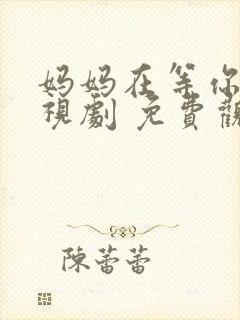 妈妈在等你
視劇 免費觀
陳蕾蕾